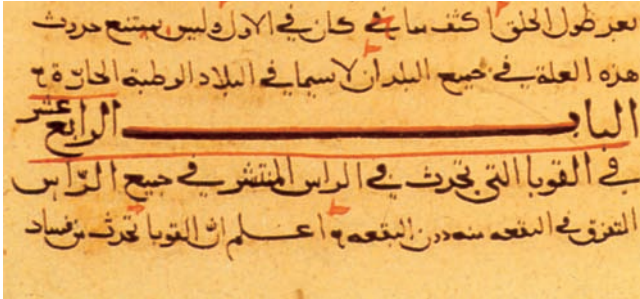 بعد طول الحلق اكثف مما في كان في الاول وليس بممتنع حدوث
هذه العلة في جميع البلدان لاسيما في البلاد الرطبة الحارّة
الباب الرابع عشر
في القوبا التي تحدث في الراس المنتشر في جميع الرّاس
المتفرق في البقعه منه دون البقعه اعلم انّ القوبا تحدث من فساد